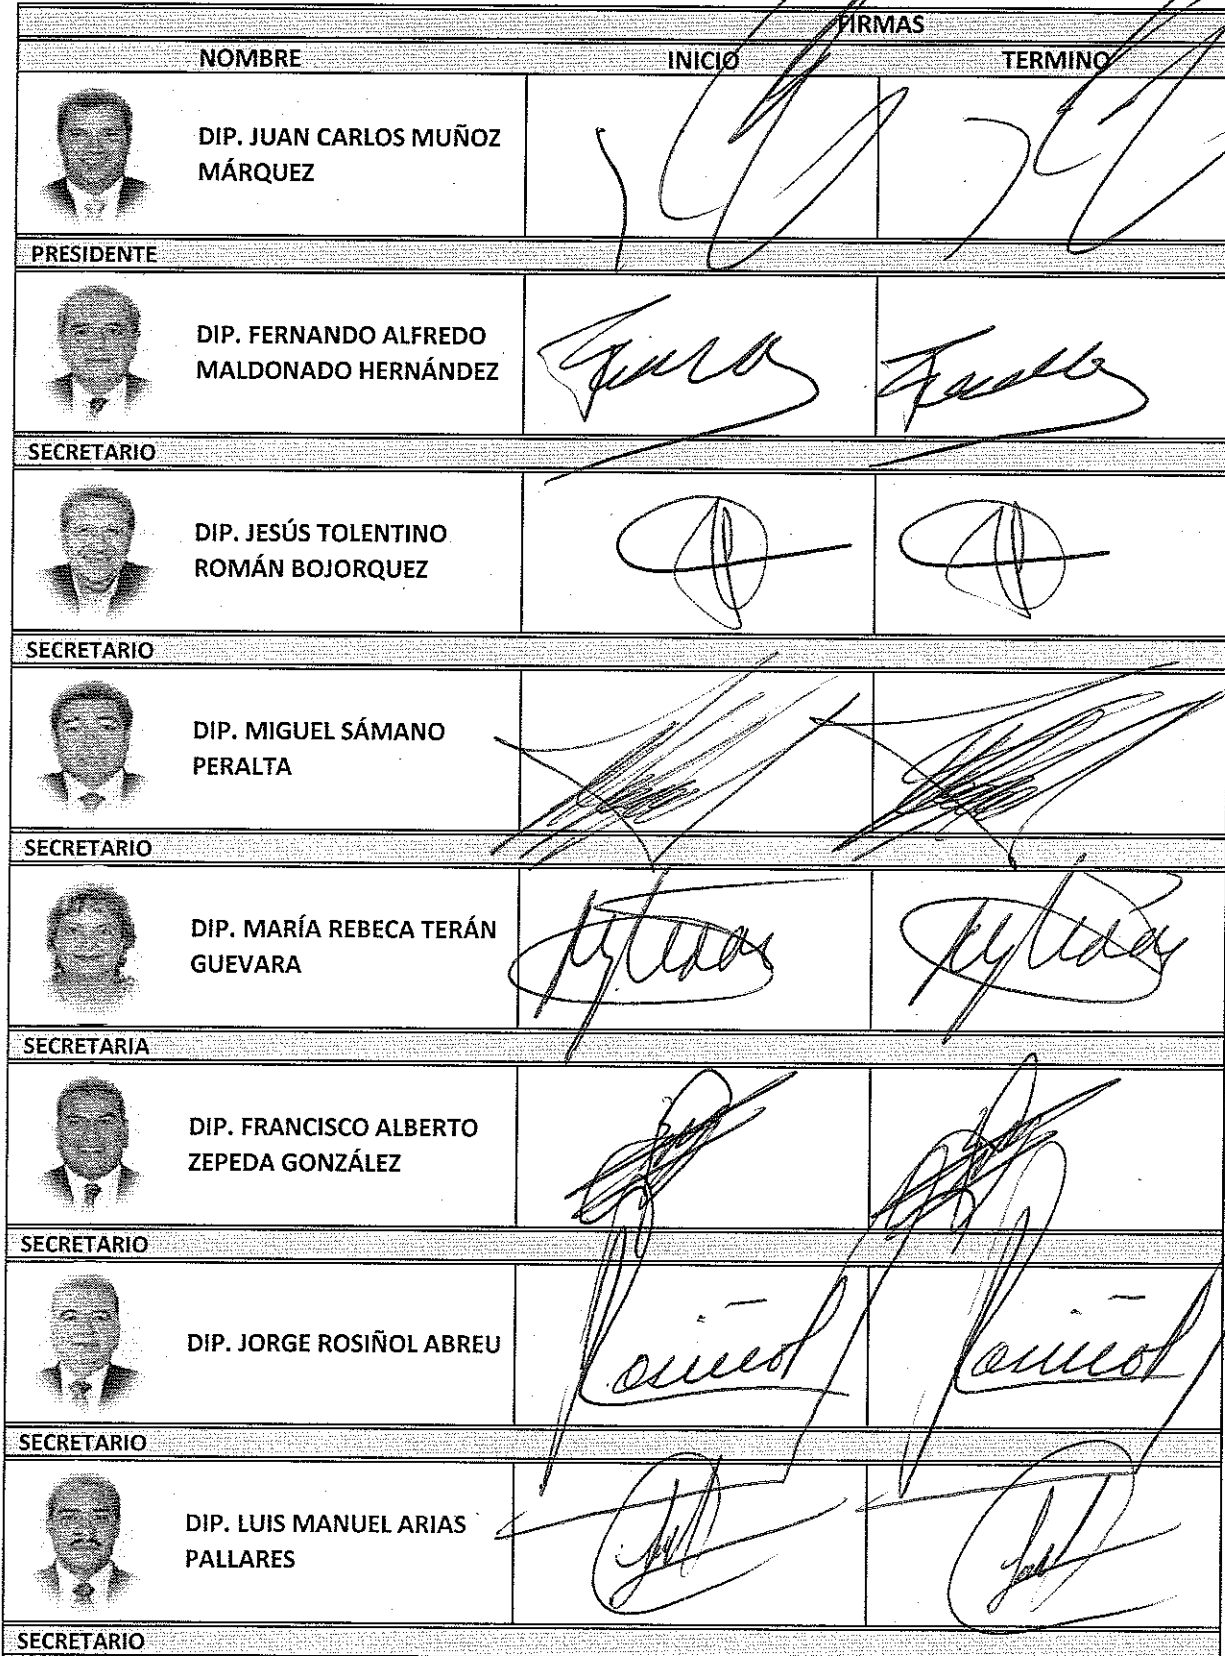 FIRMAS
NOMBRE INICIO TERMINO
DIP. JUAN CARLOS MUÑOZ
MÁRQUEZ
PRESIDENTE
DIP. FERNANDO ALFREDO
MALDONADO HERNÁNDEZ
SECRETARIO
DIP. JESÚS TOLENTINO
ROMÁN BOJORQUEZ
SECRETARIO
DIP. MIGUEL SÁMANO
PERALTA
SECRETARIO
DIP. MARÍA REBECA TERÁN
GUEVARA
SECRETARIA
DIP. FRANCISCO ALBERTO
ZEPEDA GONZÁLEZ
SECRETARIO
DIP. JORGE ROSIÑOL ABREU
SECRETARIO
DIP. LUIS MANUEL ARIAS
PALLARES
SECRETARIO